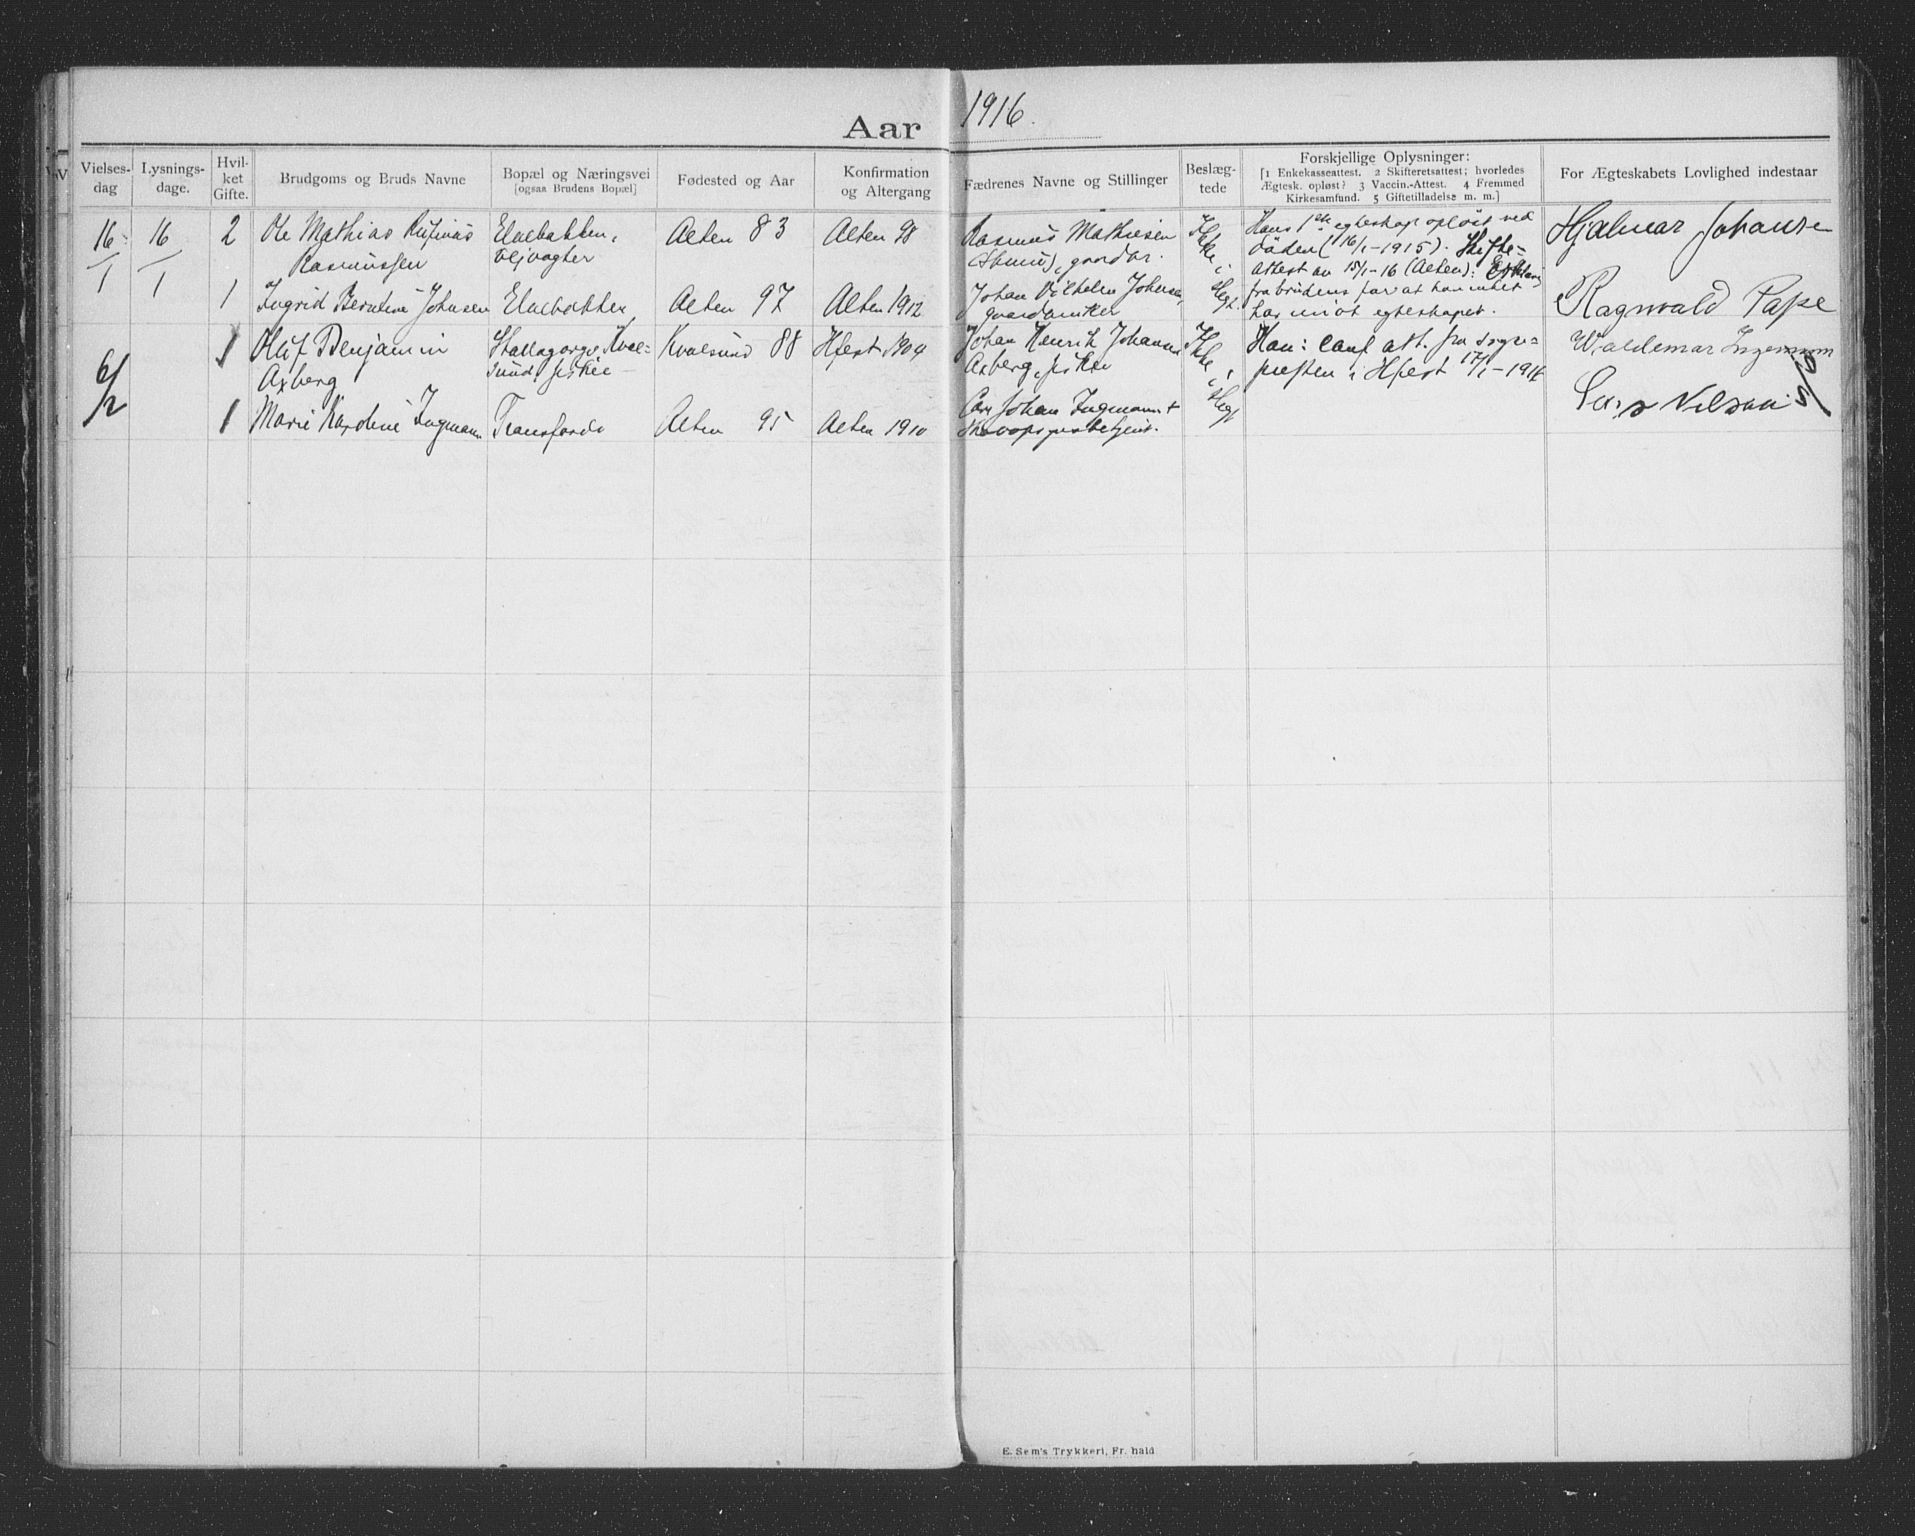 Aar 1916.
Vielses-
dag
Lysnings-
dage.
Hvil-
ket
Gifte.
Brudgoms og Bruds Navne
Bopæl og Næringsvei
[ogsaa Brudens Bopæl]
Fødested og Aar
Konfirmation
og Altergang
Fædrenes Navne og Stillinger
Beslæg-
tede
Forskjellige Oplysninger:
[1 Enkekasseattest. 2 Skifteretsattest; hvorledes
Ægtesk. opløst? 3 Vaccin.-Attest. 4 Fremmed
Kirkesamfund. 5 Giftetilladelse m. m.]
For Ægteskabets Lovlighed indestaar
16/1
16/1
2
Ole Mathias Rufinus
Rasmussen
Elvebakken,
veivogter
Alten 83
Alten 98
Rasmus Mathiesen
gaardbr.
Ikke i
slegt.
Hans 1ste egteskap opløst ved
døden (16/1-1915). Skifte-
attest av 15/1-16 (Alten).
fra brudens far at han intet
har imot egteskapet.
Hjalmar Johanse
1
Ingrid Berntine Johnsen
Elvebakken
Alten 97
Alten 1912
Johan Vilhelm Johnsen,
gaardbruker
Ragnvald Pape
6/2
1
Oluf Benjamin
Axberg
Stallogorgo, Kval-
sund, fisker
Kvalsund 88
Hfest 1904
Johan Henrik Johansen
Axberg, fisker
Ikke i
slegt
Han: att. fra sogne-
presten i Hfest 17/1-1916
Waldemar Ingemann
1
Marie Kardine Ingmann
Transfardal
Alten 95
Alten 1910
Carl Johan Ingmann +
skovopsynsbetjent.
Lars Nilsen
E. Sem's Trykkeri, Fr.hald